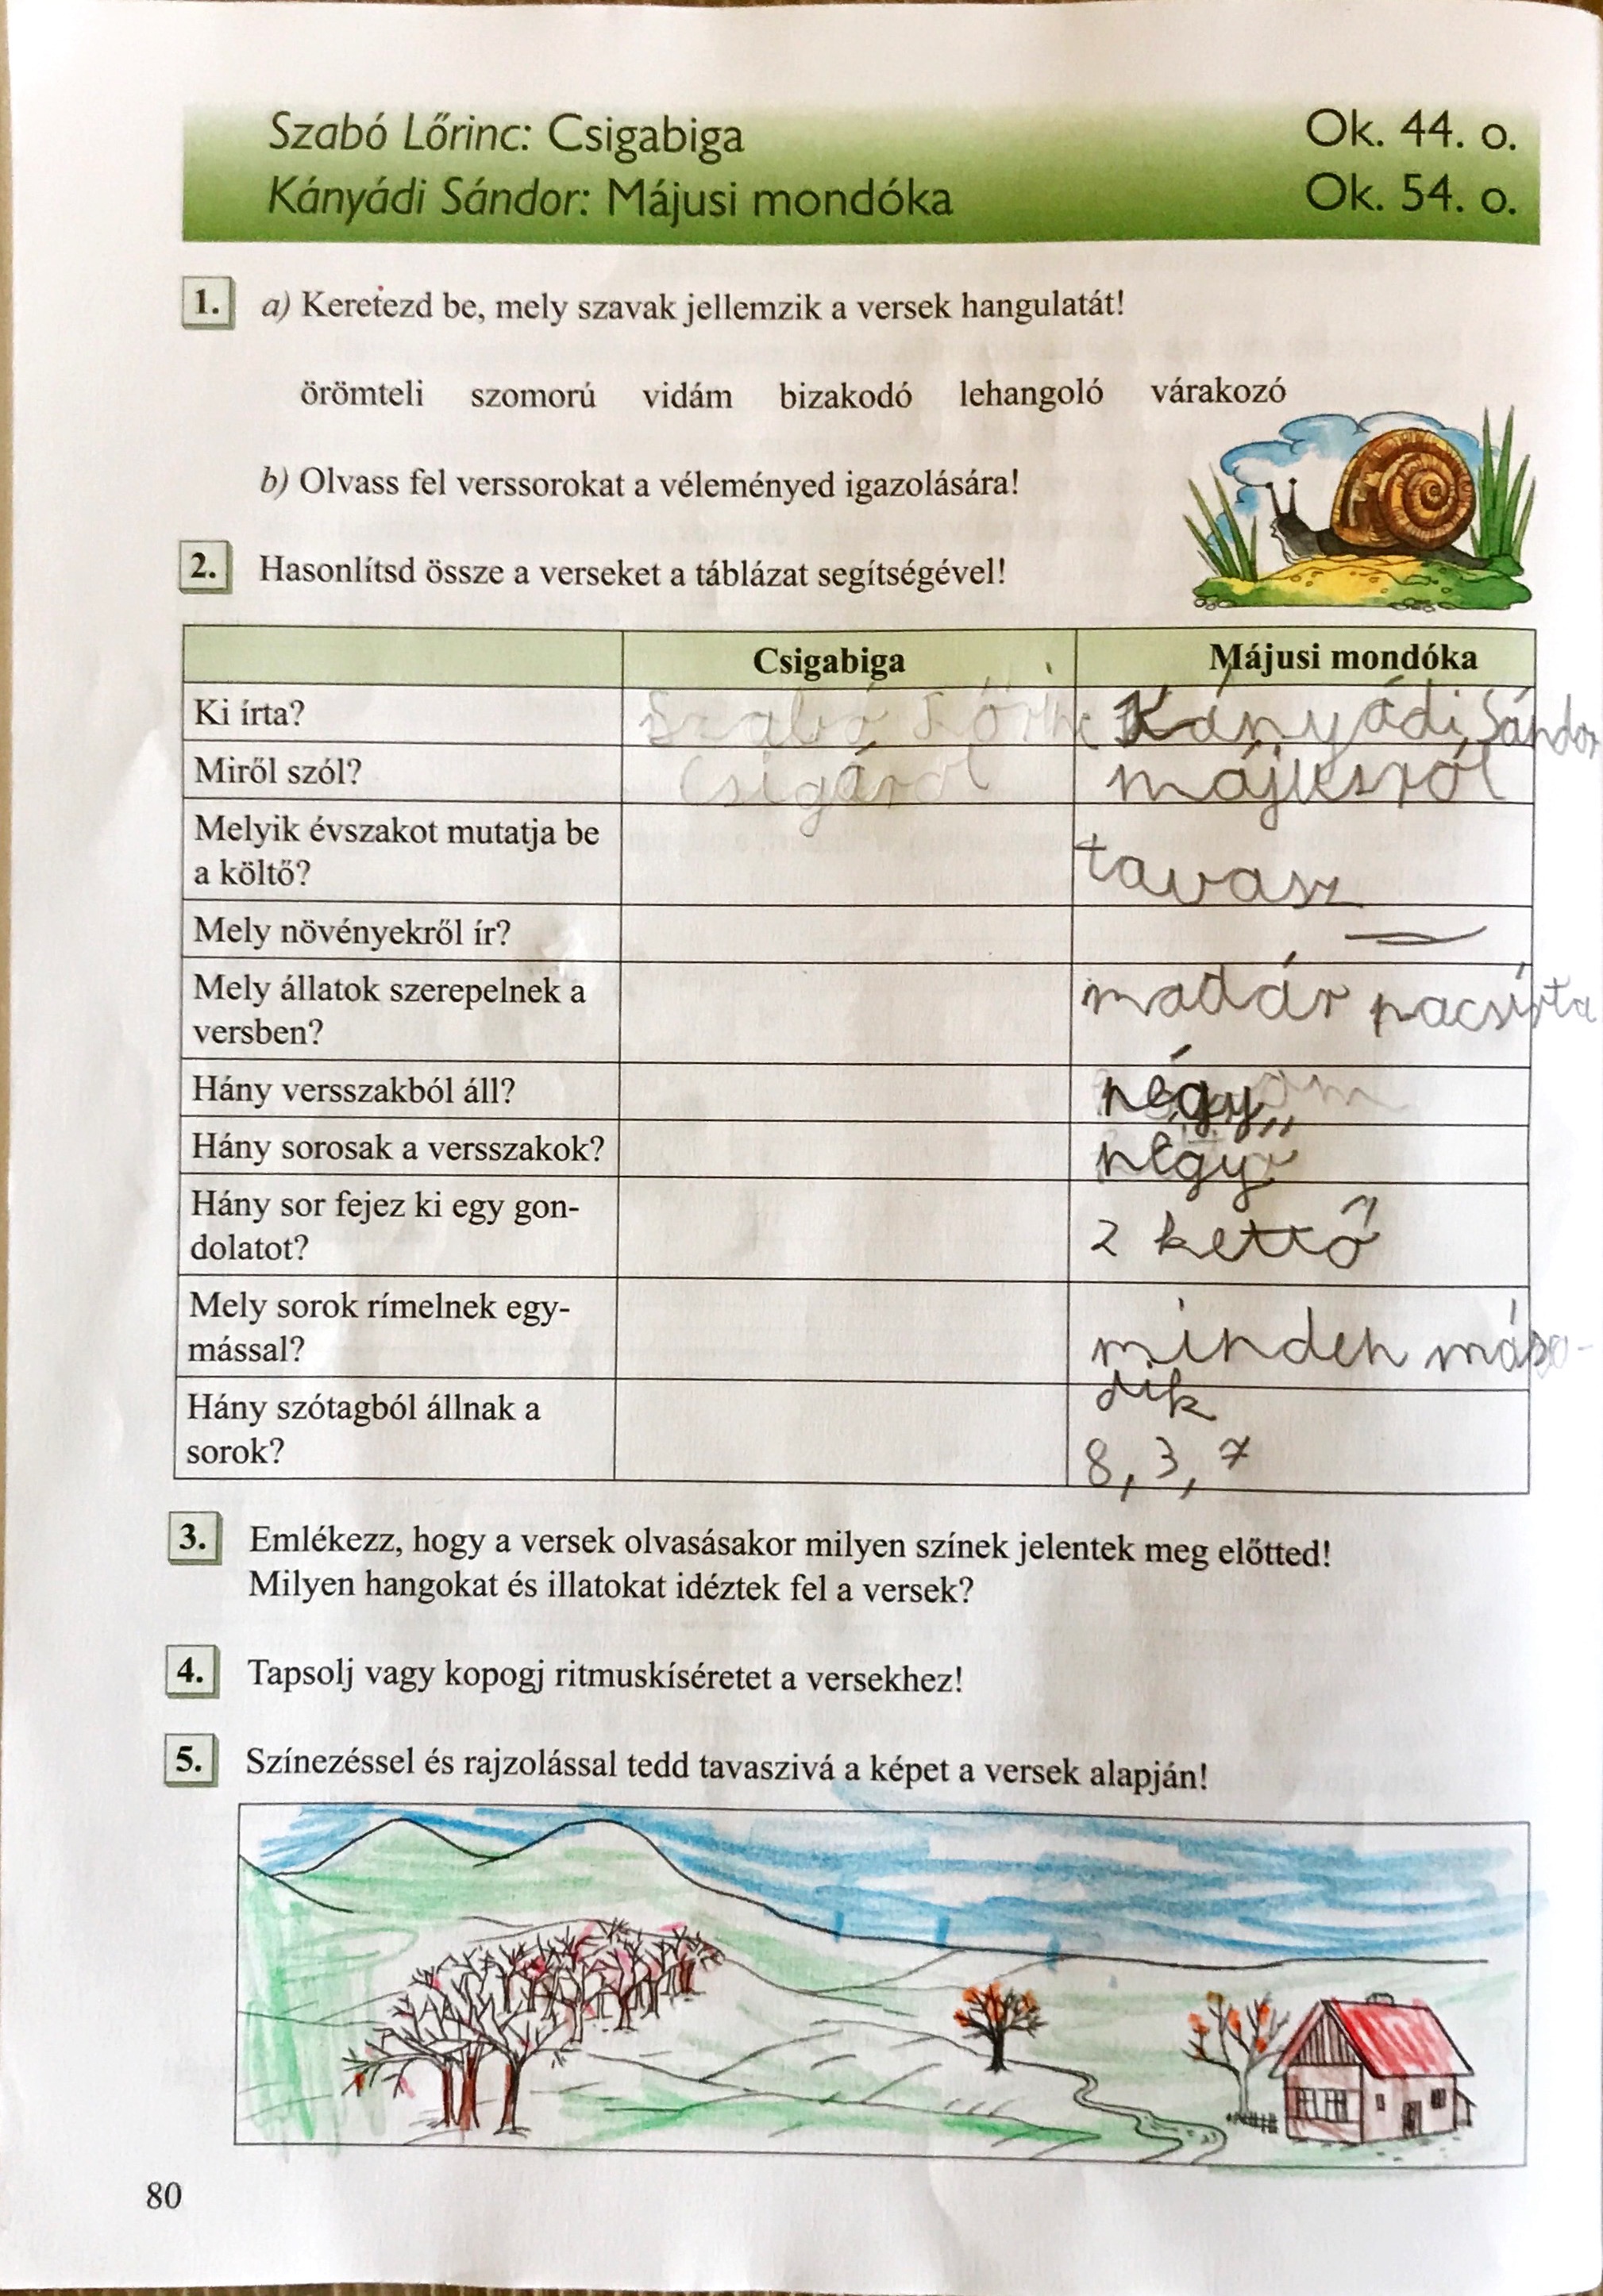 Szabó Lőrinc: Csigabiga Ok. 44. o.
Kányádi Sándor: Májusi mondóka Ok. 54. o.
1. a) Keretezd be, mely szavak jellemzik a versek hangulatát!
örömteli szomorú vidám bizakodó lehangoló várakozó
b) Olvass fel verssorokat a véleményed igazolására!
2. Hasonlítsd össze a verseket a táblázat segítségével!
Csigabiga Májusi mondóka
Ki írta? Szabó Lőrinc Kányádi Sándor
Miről szól? Csigáról májusról
Melyik évszakot mutatja be
a költő? tavasz
Mely növényekről ír?
Mely állatok szerepelnek a madár pacsirta
versben?
Hány versszakból áll? négy
Hány sorosak a versszakok? négy
Hány sor fejez ki egy gon-
dolatot? 2 kettő
Mely sorok rímelnek egy-
mással? minden máso-
dik
Hány szótagból állnak a
sorok? 8, 3, 7
3. Emlékezz, hogy a versek olvasásakor milyen színek jelentek meg előtted!
Milyen hangokat és illatokat idéztek fel a versek?
4. Tapsolj vagy kopogj ritmuskíséretet a versekhez!
5. Színezéssel és rajzolással tedd tavaszivá a képet a versek alapján!
80